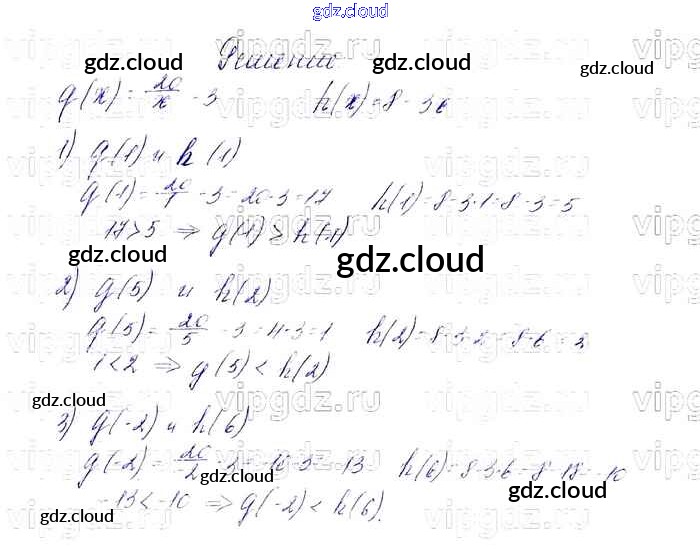 gdz.cloud
Решение
g(x) = 20/x - 3    h(x) = 8 - 3x
1) g(1) и h(1)
g(1) = 20/1 - 3 = 20-3 = 17    h(1) = 8-3·1 = 8-3 = 5
17 > 5 ⇒ g(1) > h(1)
2) g(5) и h(2)
g(5) = 20/5 - 3 = 4-3 = 1    h(2) = 8-3·2 = 8-6 = 2
1 < 2 ⇒ g(5) < h(2)
3) g(-2) и h(6)
g(-2) = 20/-2 - 3 = -10-3 = -13    h(6) = 8-3·6 = 8-18 = -10
-13 < -10 ⇒ g(-2) < h(6).
gdz.cloud
gdz.cloud
gdz.cloud
gdz.cloud
gdz.cloud
gdz.cloud
gdz.cloud
gdz.cloud
gdz.cloud
gdz.cloud
vipgdz.ru